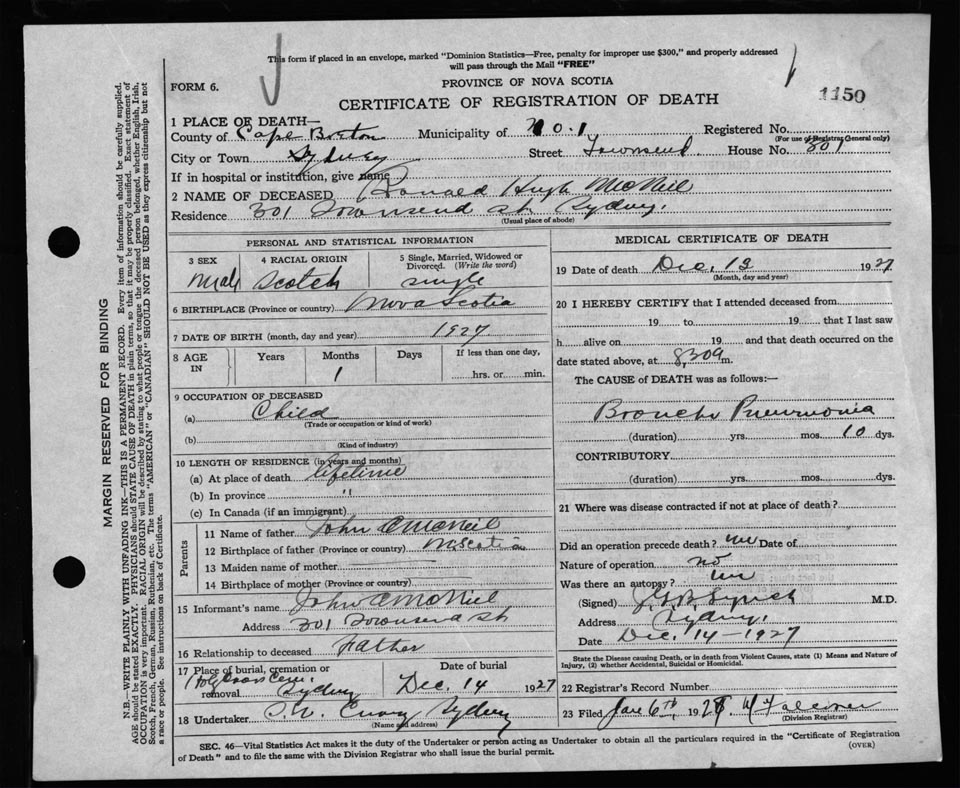 This form if placed in an envelope, marked "Dominion Statistics—Free, penalty for improper use $300," and properly addressed
will pass through the Mail "FREE"
FORM 6.
PROVINCE OF NOVA SCOTIA
1150
CERTIFICATE OF REGISTRATION OF DEATH
1 PLACE OF DEATH—
County of Cape Breton Municipality of No. 1 Registered No.
(For use of Registrar General only)
City or Town Sydney Street Townsend House No. 301
If in hospital or institution, give name
2 NAME OF DECEASED Ronald Hugh McNeil
Residence 301 Townsend St Sydney.
(Usual place of abode)
PERSONAL AND STATISTICAL INFORMATION
3 SEX 4 RACIAL ORIGIN 5 Single, Married, Widowed or Divorced. (Write the word)
Male Scotch single
6 BIRTHPLACE (Province or country) Nova Scotia
7 DATE OF BIRTH (month, day and year) 1927
8 AGE IN Years Months Days If less than one day,
1 hrs. or min.
9 OCCUPATION OF DECEASED
(a) Child
(Trade or occupation or kind of work)
(b)
(Kind of industry)
10 LENGTH OF RESIDENCE (in years and months)
(a) At place of death lifetime
(b) In province "
(c) In Canada (if an immigrant)
Parents
11 Name of father John C McNeil
12 Birthplace of father (Province or country) N Scotia
13 Maiden name of mother
14 Birthplace of mother (Province or country)
15 Informant's name John C McNeil
Address 301 Townsend St
16 Relationship to deceased Father
17 Place of burial, cremation or removal Date of burial
Holy Cross Cem. Sydney Dec. 14 1927
18 Undertaker Sydney
(Name and address)
MEDICAL CERTIFICATE OF DEATH
19 Date of death Dec. 13 1927
(Month, day and year)
20 I HEREBY CERTIFY that I attended deceased from
19 to 19 that I last saw
h alive on 19 and that death occurred on the
date stated above, at 8.30 a m.
The CAUSE OF DEATH was as follows:—
Broncho Pneumonia
(duration) yrs. mos. 10 dys.
CONTRIBUTORY
(duration) yrs. mos. dys.
21 Where was disease contracted if not at place of death?
Did an operation precede death? Date of
Nature of operation no
Was there an autopsy?
(Signed) Lynch M.D.
Address Sydney.
Date Dec. 14—1927
State the Disease causing Death, or in death from Violent Causes, state (1) Means and Nature of
Injury, (2) whether Accidental, Suicidal or Homicidal.
22 Registrar's Record Number
23 Filed Jan 6th, 1928
(Division Registrar)
SEC. 46—Vital Statistics Act makes it the duty of the Undertaker or person acting as Undertaker to obtain all the particulars required in the "Certificate of Registration
of Death" and to file same with the Division Registrar who shall issue the burial permit.
(OVER)
MARGIN RESERVED FOR BINDING
N.B.—WRITE PLAINLY WITH UNFADING INK—THIS IS A PERMANENT RECORD. Every item of information should be carefully supplied.
AGE should be stated EXACTLY. PHYSICIANS should STATE CAUSE OF DEATH in plain terms, so that it may be properly classified. Exact statement of
OCCUPATION is very important. RACIAL ORIGIN will be described by stating to what people or tongue the deceased person belonged, whether English, Irish,
Scotch, French, German, Russian, Ruthenian, etc. The terms "AMERICAN" or "CANADIAN" SHOULD NOT BE USED as they express citizenship but not
a race or people. See instructions on back of Certificate.